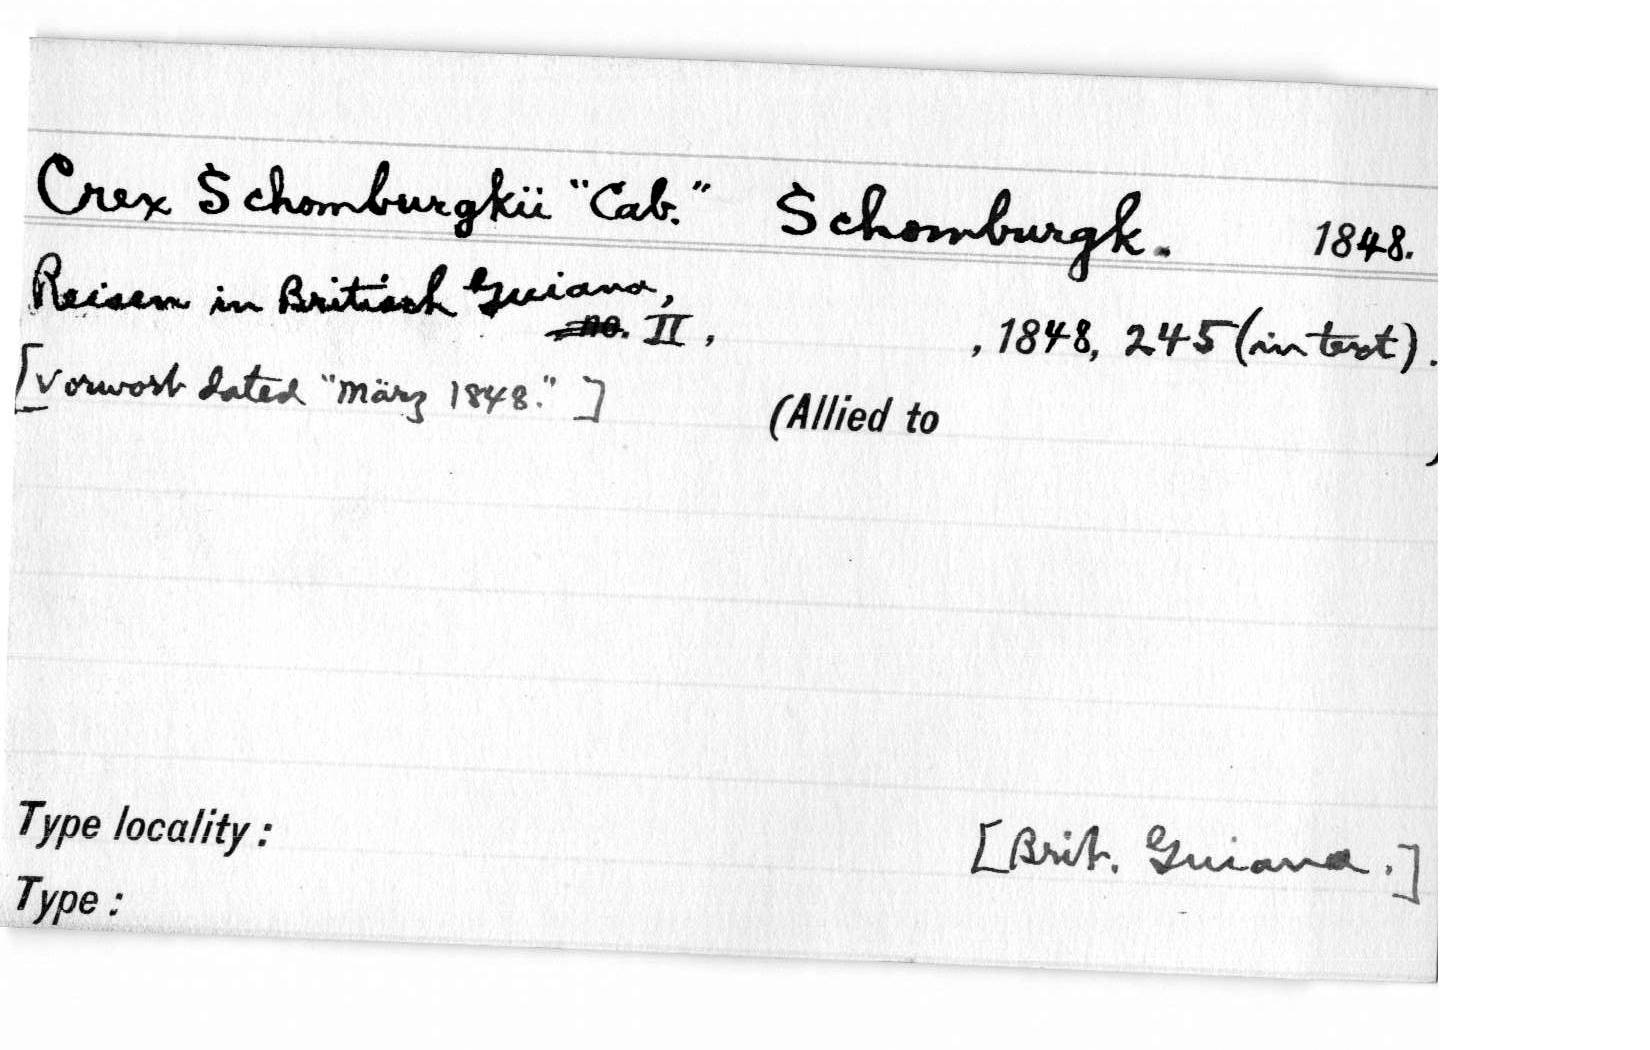 Crex Schomburgkii "Cab." Schomburgk. 1848.
Reisen in Britisch Guiana,
no. II, , 1848, 245 (in text).
[Vorwort dated "März 1848." ]
(Allied to )
Type locality: [Brit. Guiana.]
Type: